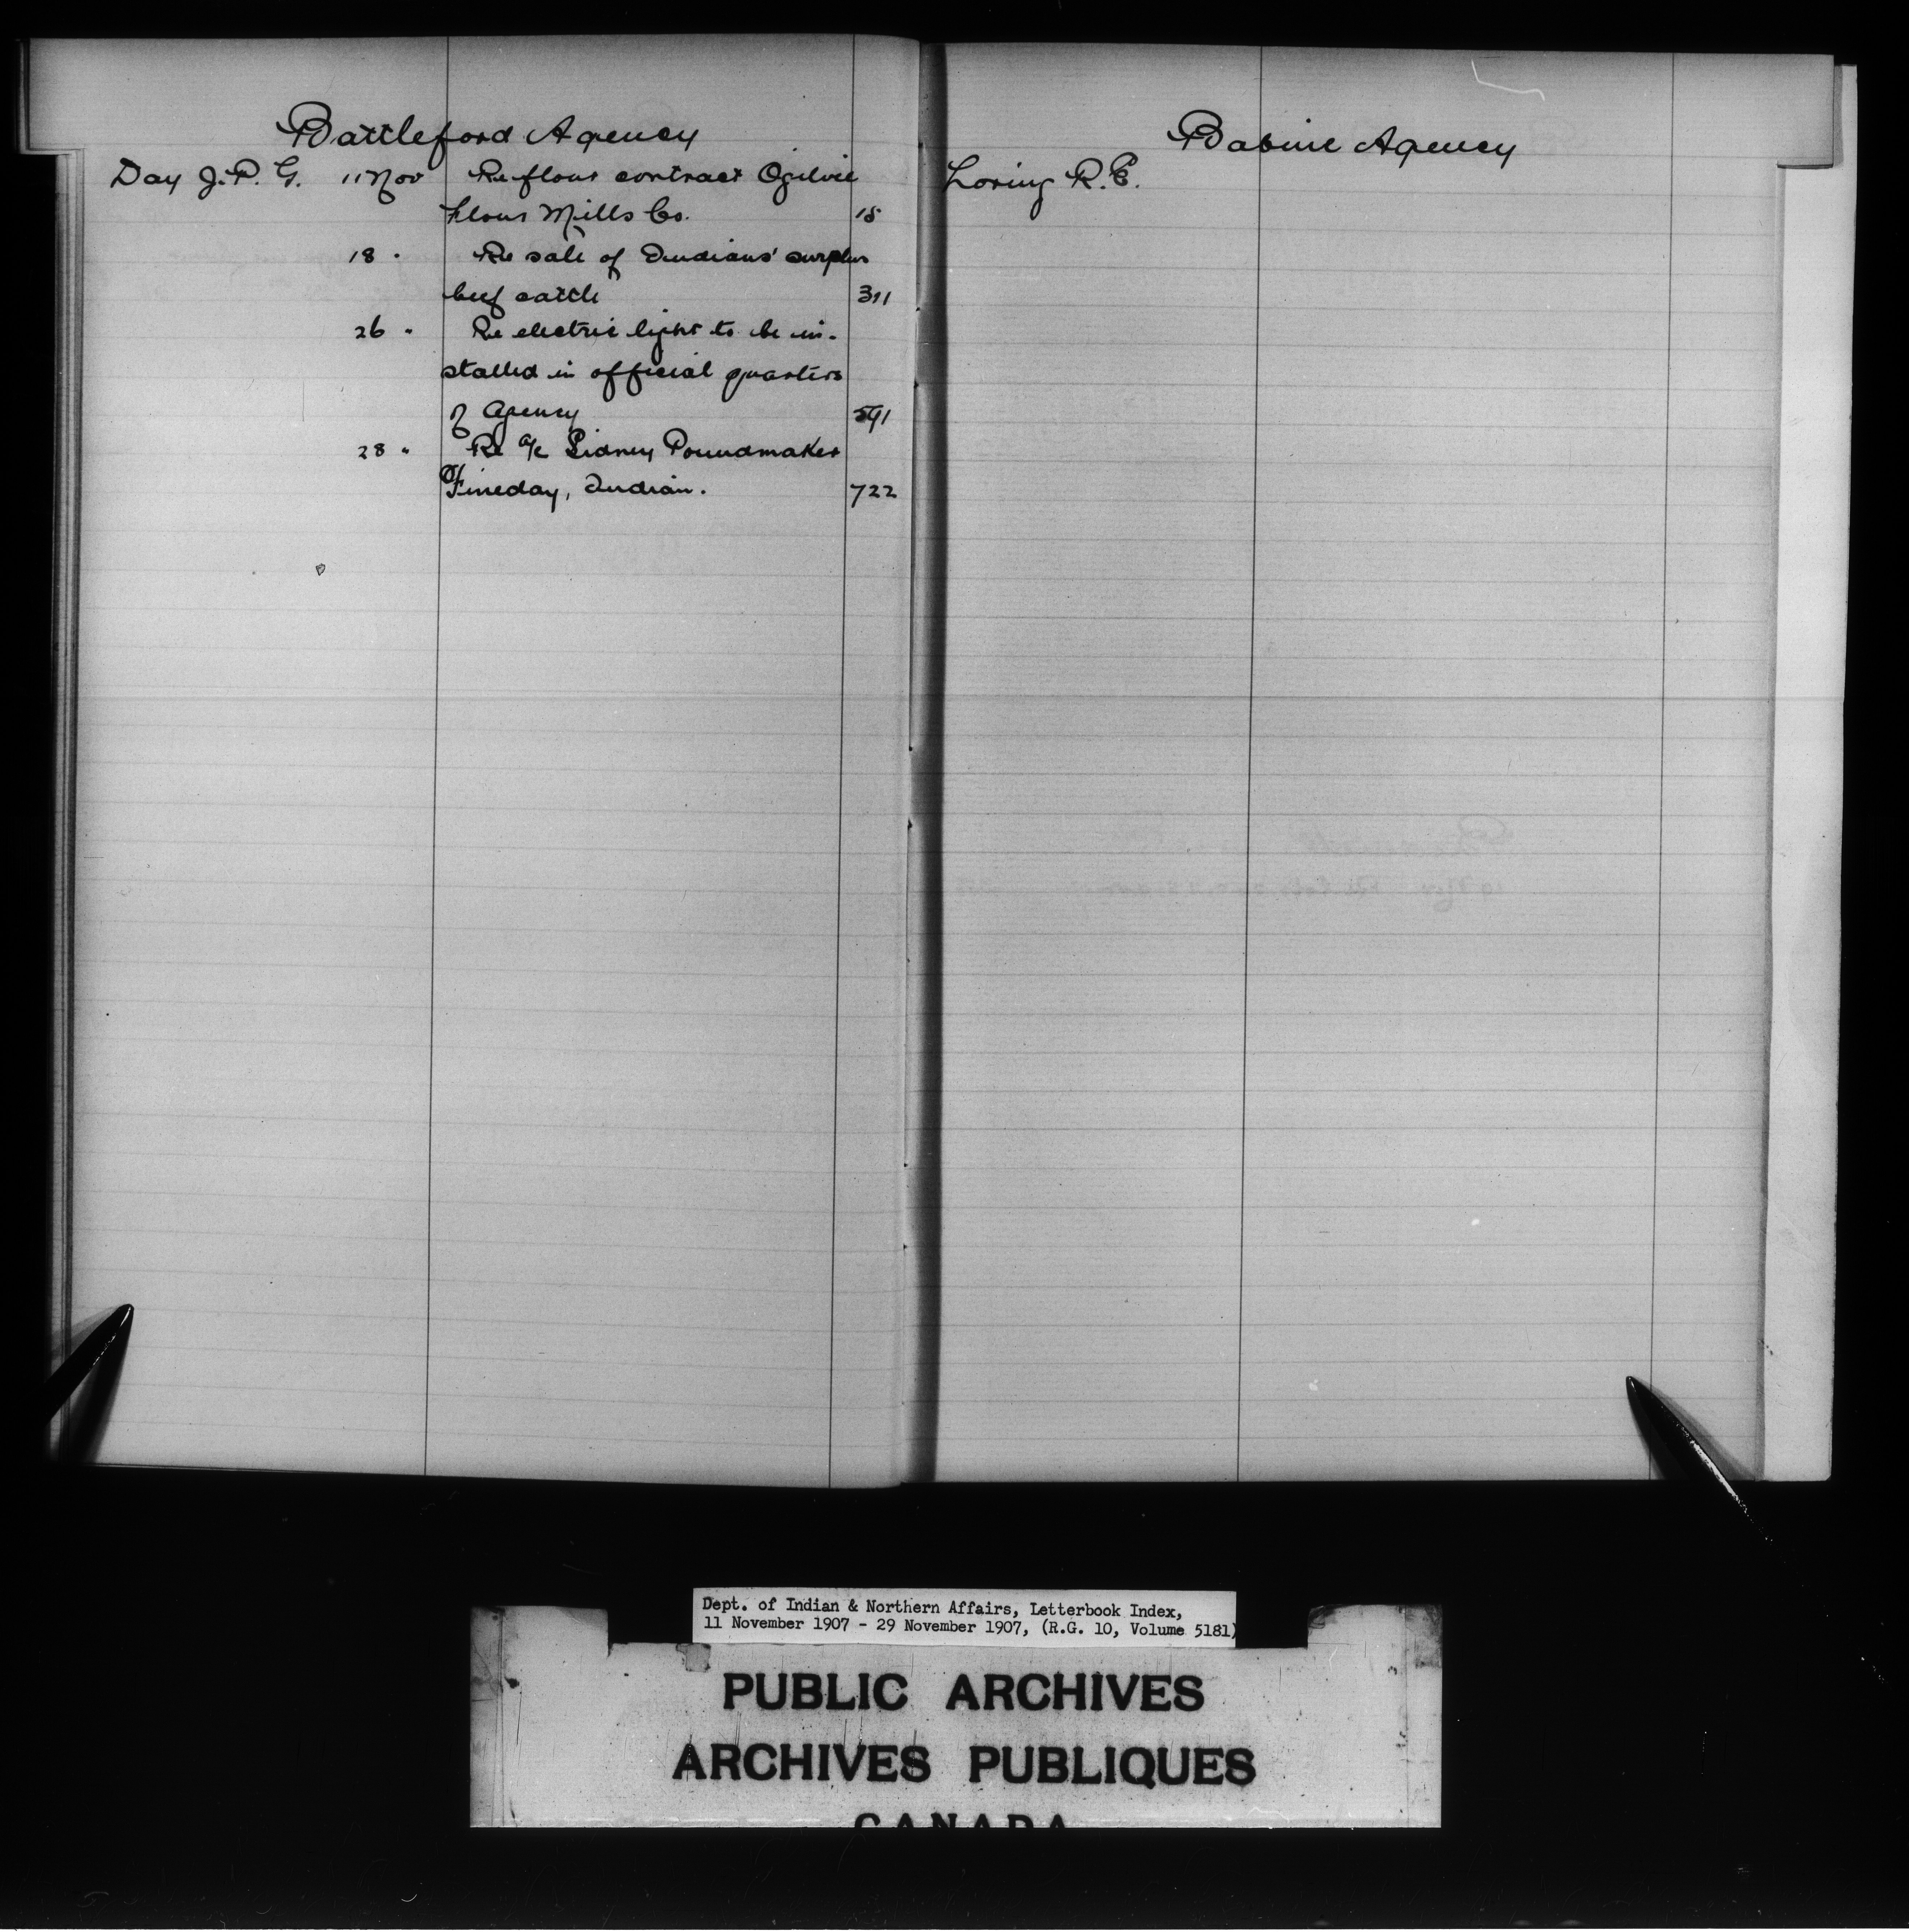 Battleford Agency
Day J. P. G. 11 Nov Re flour contract Ogilvie
Flour Mills Co. 15
18 " Re sale of Indians' surplus
beef cattle 311
26 " Re electric light to be in-
stalled in official quarters
of Agency 591
28 " Re a/c Sidney Poundmaker
of Fineday, Indian. 722
Babine Agency
Loring R. E.
Dept. of Indian & Northern Affairs, Letterbook Index,
11 November 1907 - 29 November 1907, (R.G. 10, Volume 5181)
PUBLIC ARCHIVES
ARCHIVES PUBLIQUES
CANADA